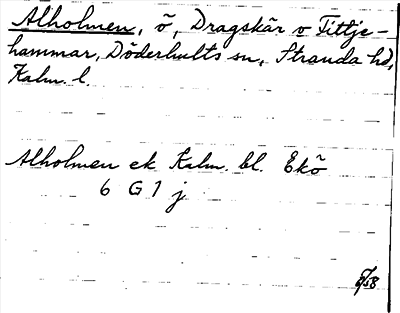 Alholmen, ö, Dragskär o Fittje-
hammar, Döderhults sn, Stranda hd,
Kalm. l.
Alholmen ek Kalm. bl. Ekö
6 G 1 j